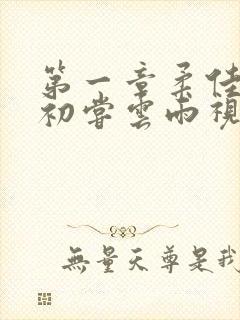 第一章柔佳
初嘗雲雨視
無量天尊是我